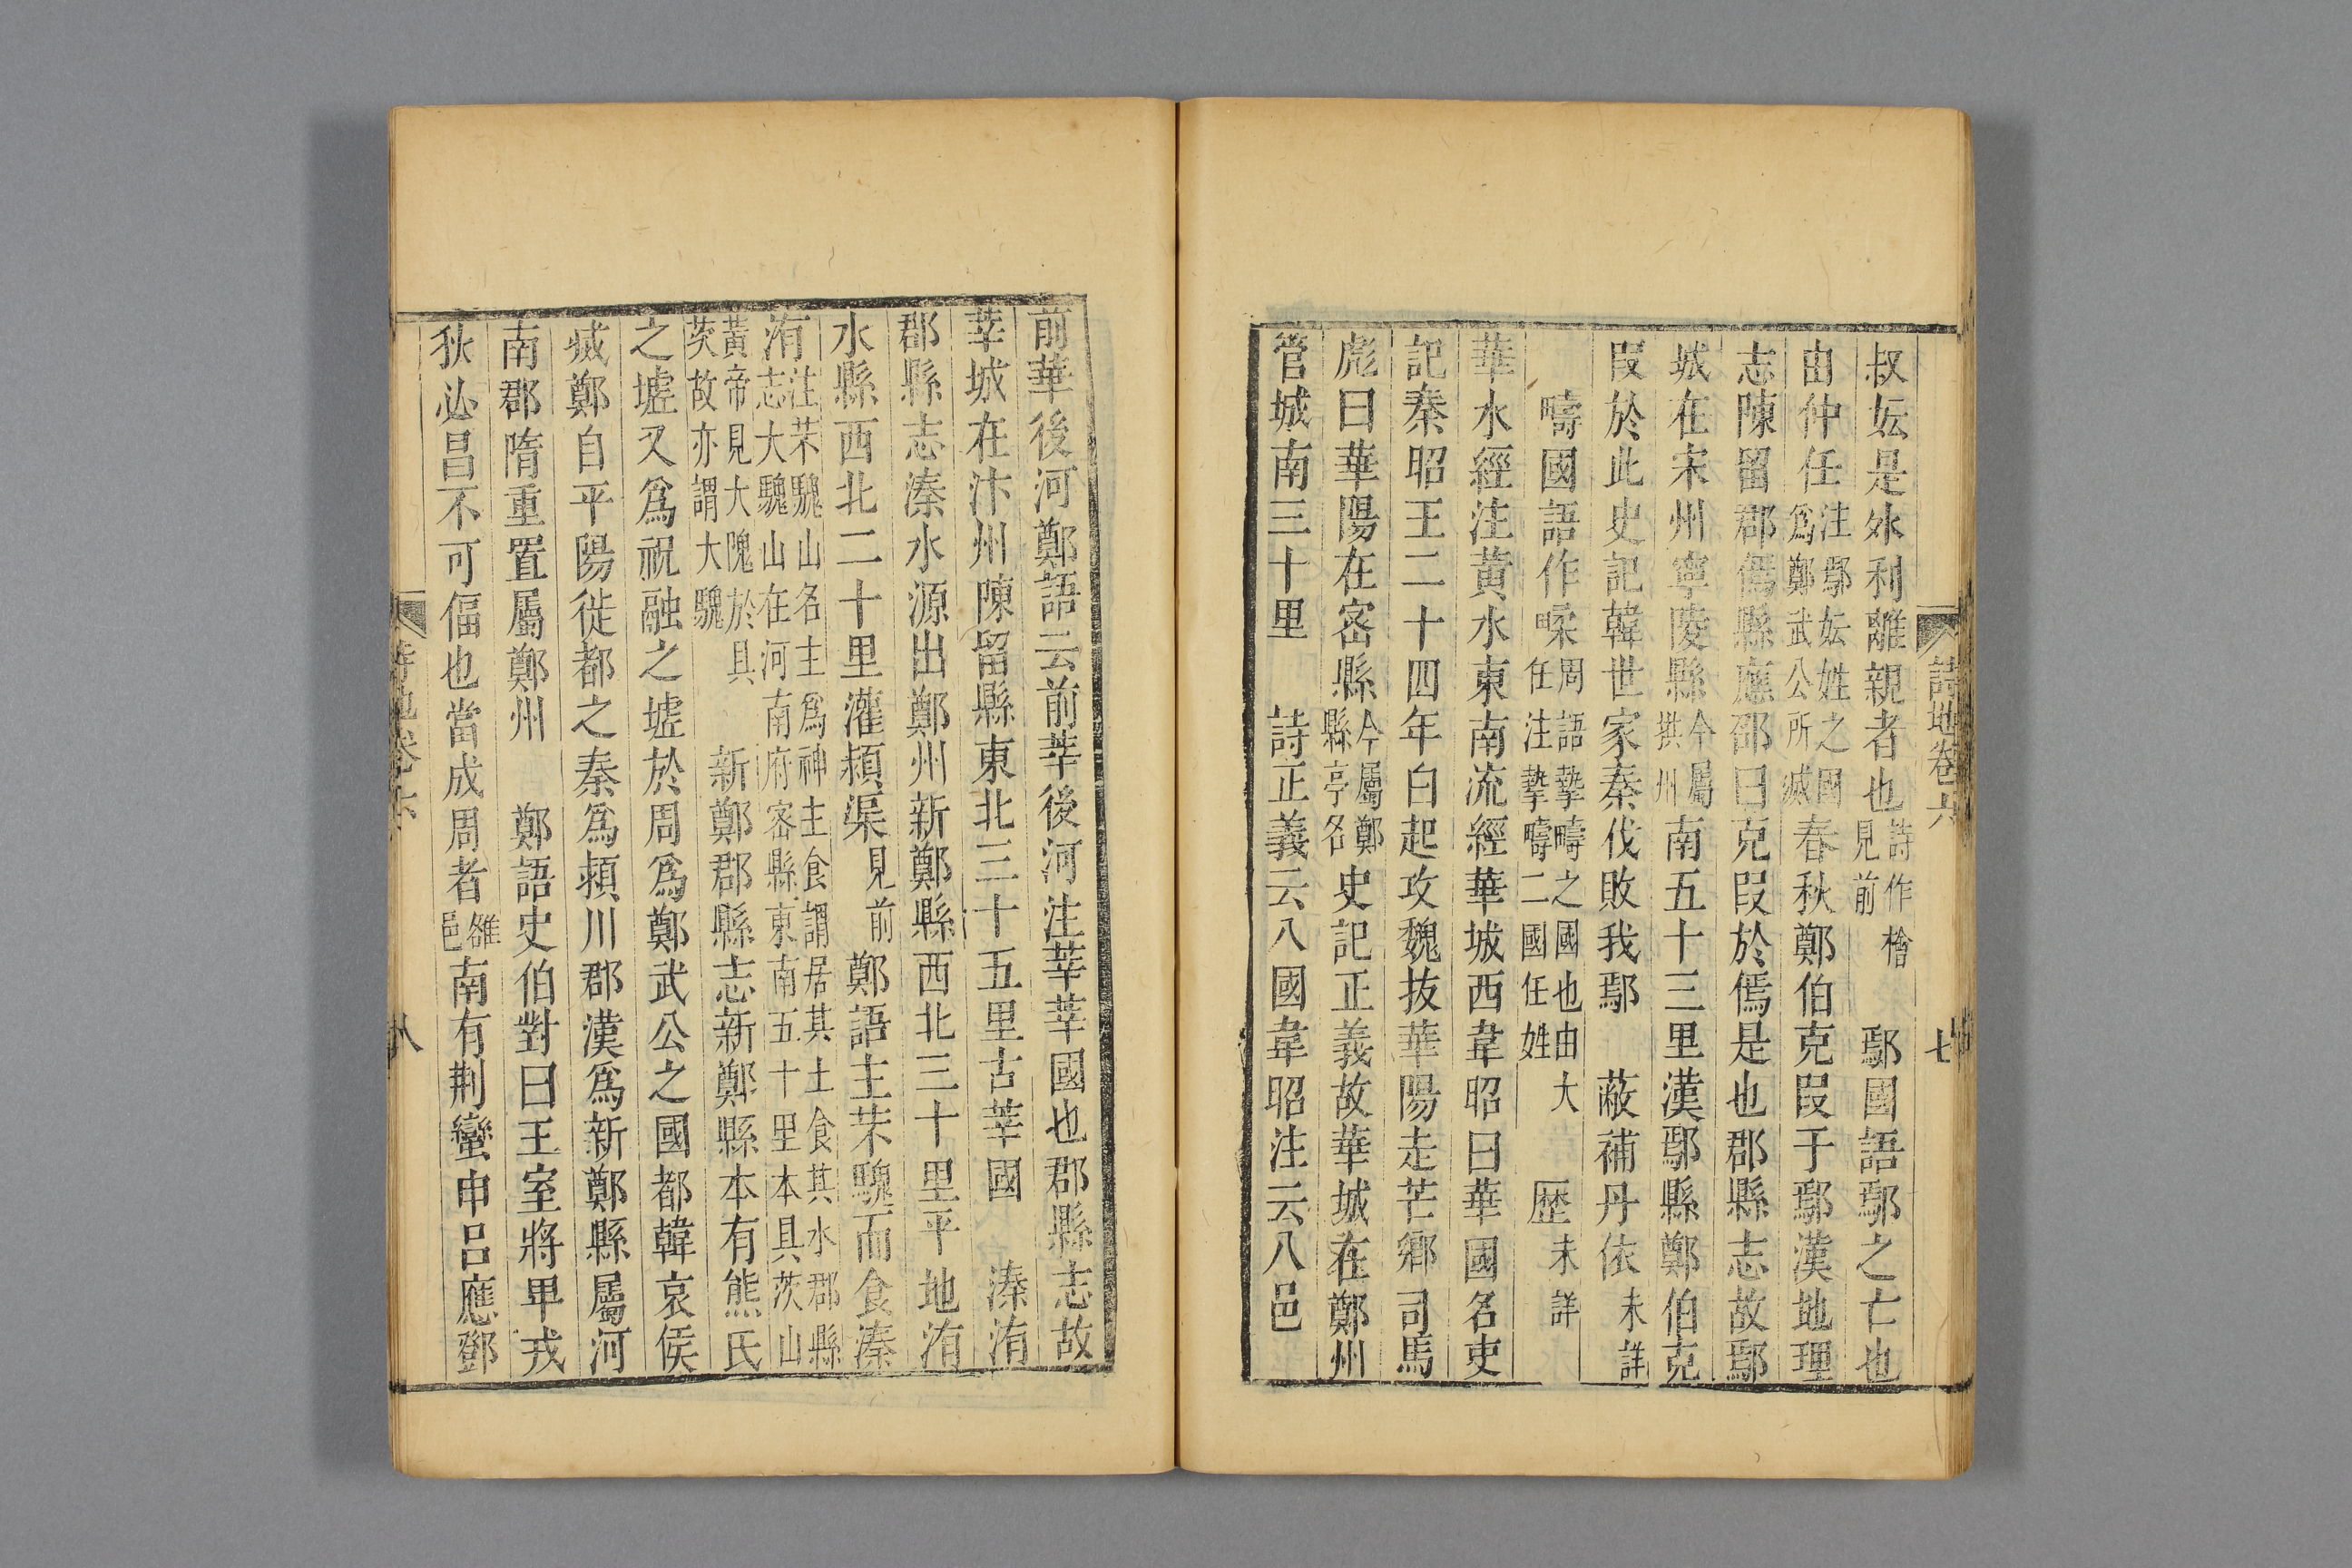 詩地卷六 七
叔妘是外利離親者也詩作檜見前 鄢國語鄢之亡也
由仲任注鄢妘姓之國爲鄭武公所滅春秋鄭伯克段于鄢漢地理
志陳留郡傿縣應邵曰克段於傿是也郡縣志故鄢
城在宋州寧陵縣今屬拱州南五十三里漢鄢縣鄭伯克
段於此史記韓世家秦伐敗我鄢 蔽補丹依未詳
疇國語作㽥周語摯疇之國也由大任注摯疇二國任姓 歷未詳
華水經注黃水東南流經華城西韋昭曰華國名史
記秦昭王二十四年白起攻魏拔華陽走芒鄉司馬
彪曰華陽在密縣今屬鄭縣亭名史記正義故華城在鄭州
管城南三十里 詩正義云八國韋昭注云八邑
前華後河鄭語云前莘後河注莘莘國也郡縣志故
莘城在汴州陳留縣東北三十五里古莘國 溱洧
郡縣志溱水源出鄭州新鄭縣西北三十里平地洧
水縣西北二十里灌潁渠見前 鄭語主芣騩而食溱
洧注芣騩山名主爲神主食謂居其土食其水郡縣志大騩山在河南府密縣東南五十里本具茨山
黃帝見大隗於具茨故亦謂大騩 新鄭郡縣志新鄭縣本有熊氏
之墟又爲祝融之墟於周爲鄭武公之國都韓哀侯
滅鄭自平陽徙都之秦爲潁川郡漢爲新鄭縣屬河
南郡隋重置屬鄭州 鄭語史伯對曰王室將卑戎
狄必昌不可偪也當成周者雒邑南有荆蠻申呂應鄧
詩地卷六 八